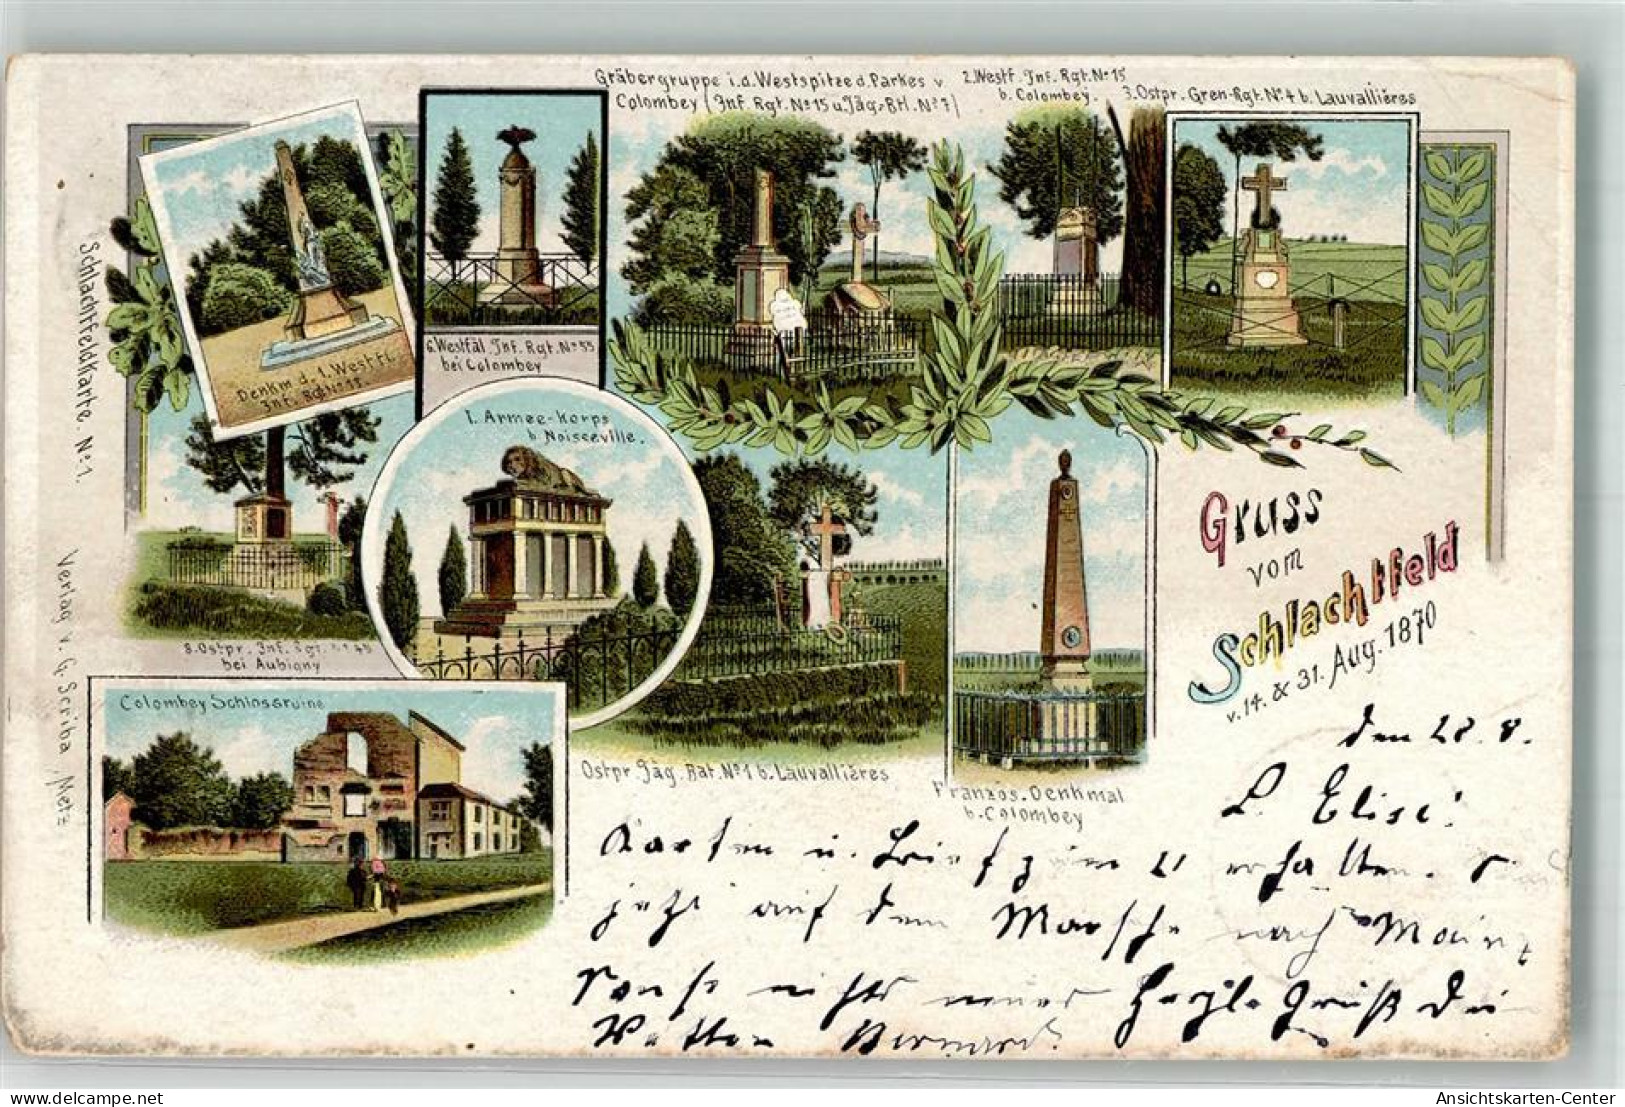 Gräbergruppe i.d. Westspitze d. Parkes v
Colombey (Inf. Rgt. No 15 u. Jäg.-Btl. No 7)
2. Westf. Inf. Rgt. No 15
b. Colombey.
3. Ostpr. Gren-Rgt. No 4 b. Lauvallières
Denkm d. 1. Westfl.
Inf. Rgt. No 13.
6. Westfäl. Inf. Rgt. No 55
bei Colombey
I. Armee-Korps
b. Noisseville.
8. Ostpr. Inf. Rgt. No 45
bei Aubigny
Colombey Schlossruine
Ostpr. Jäg. Bat. No 1 b. Lauvallières
Französ. Denkmal
b. Colombey
Schlachtfeldkarte. No 1.
Verlag v. G. Scriba, Metz
Gruss
vom
Schlachtfeld
v. 14. & 31. Aug. 1870
den 28. 8.
L. Elise!
Karten u. Brief erhalten.
jetzt auf dem Marsche nach Mainz
sonst nichts neues Herzl. Gruß Dein
Vetter Bernard.
Ansichtskarten-Center